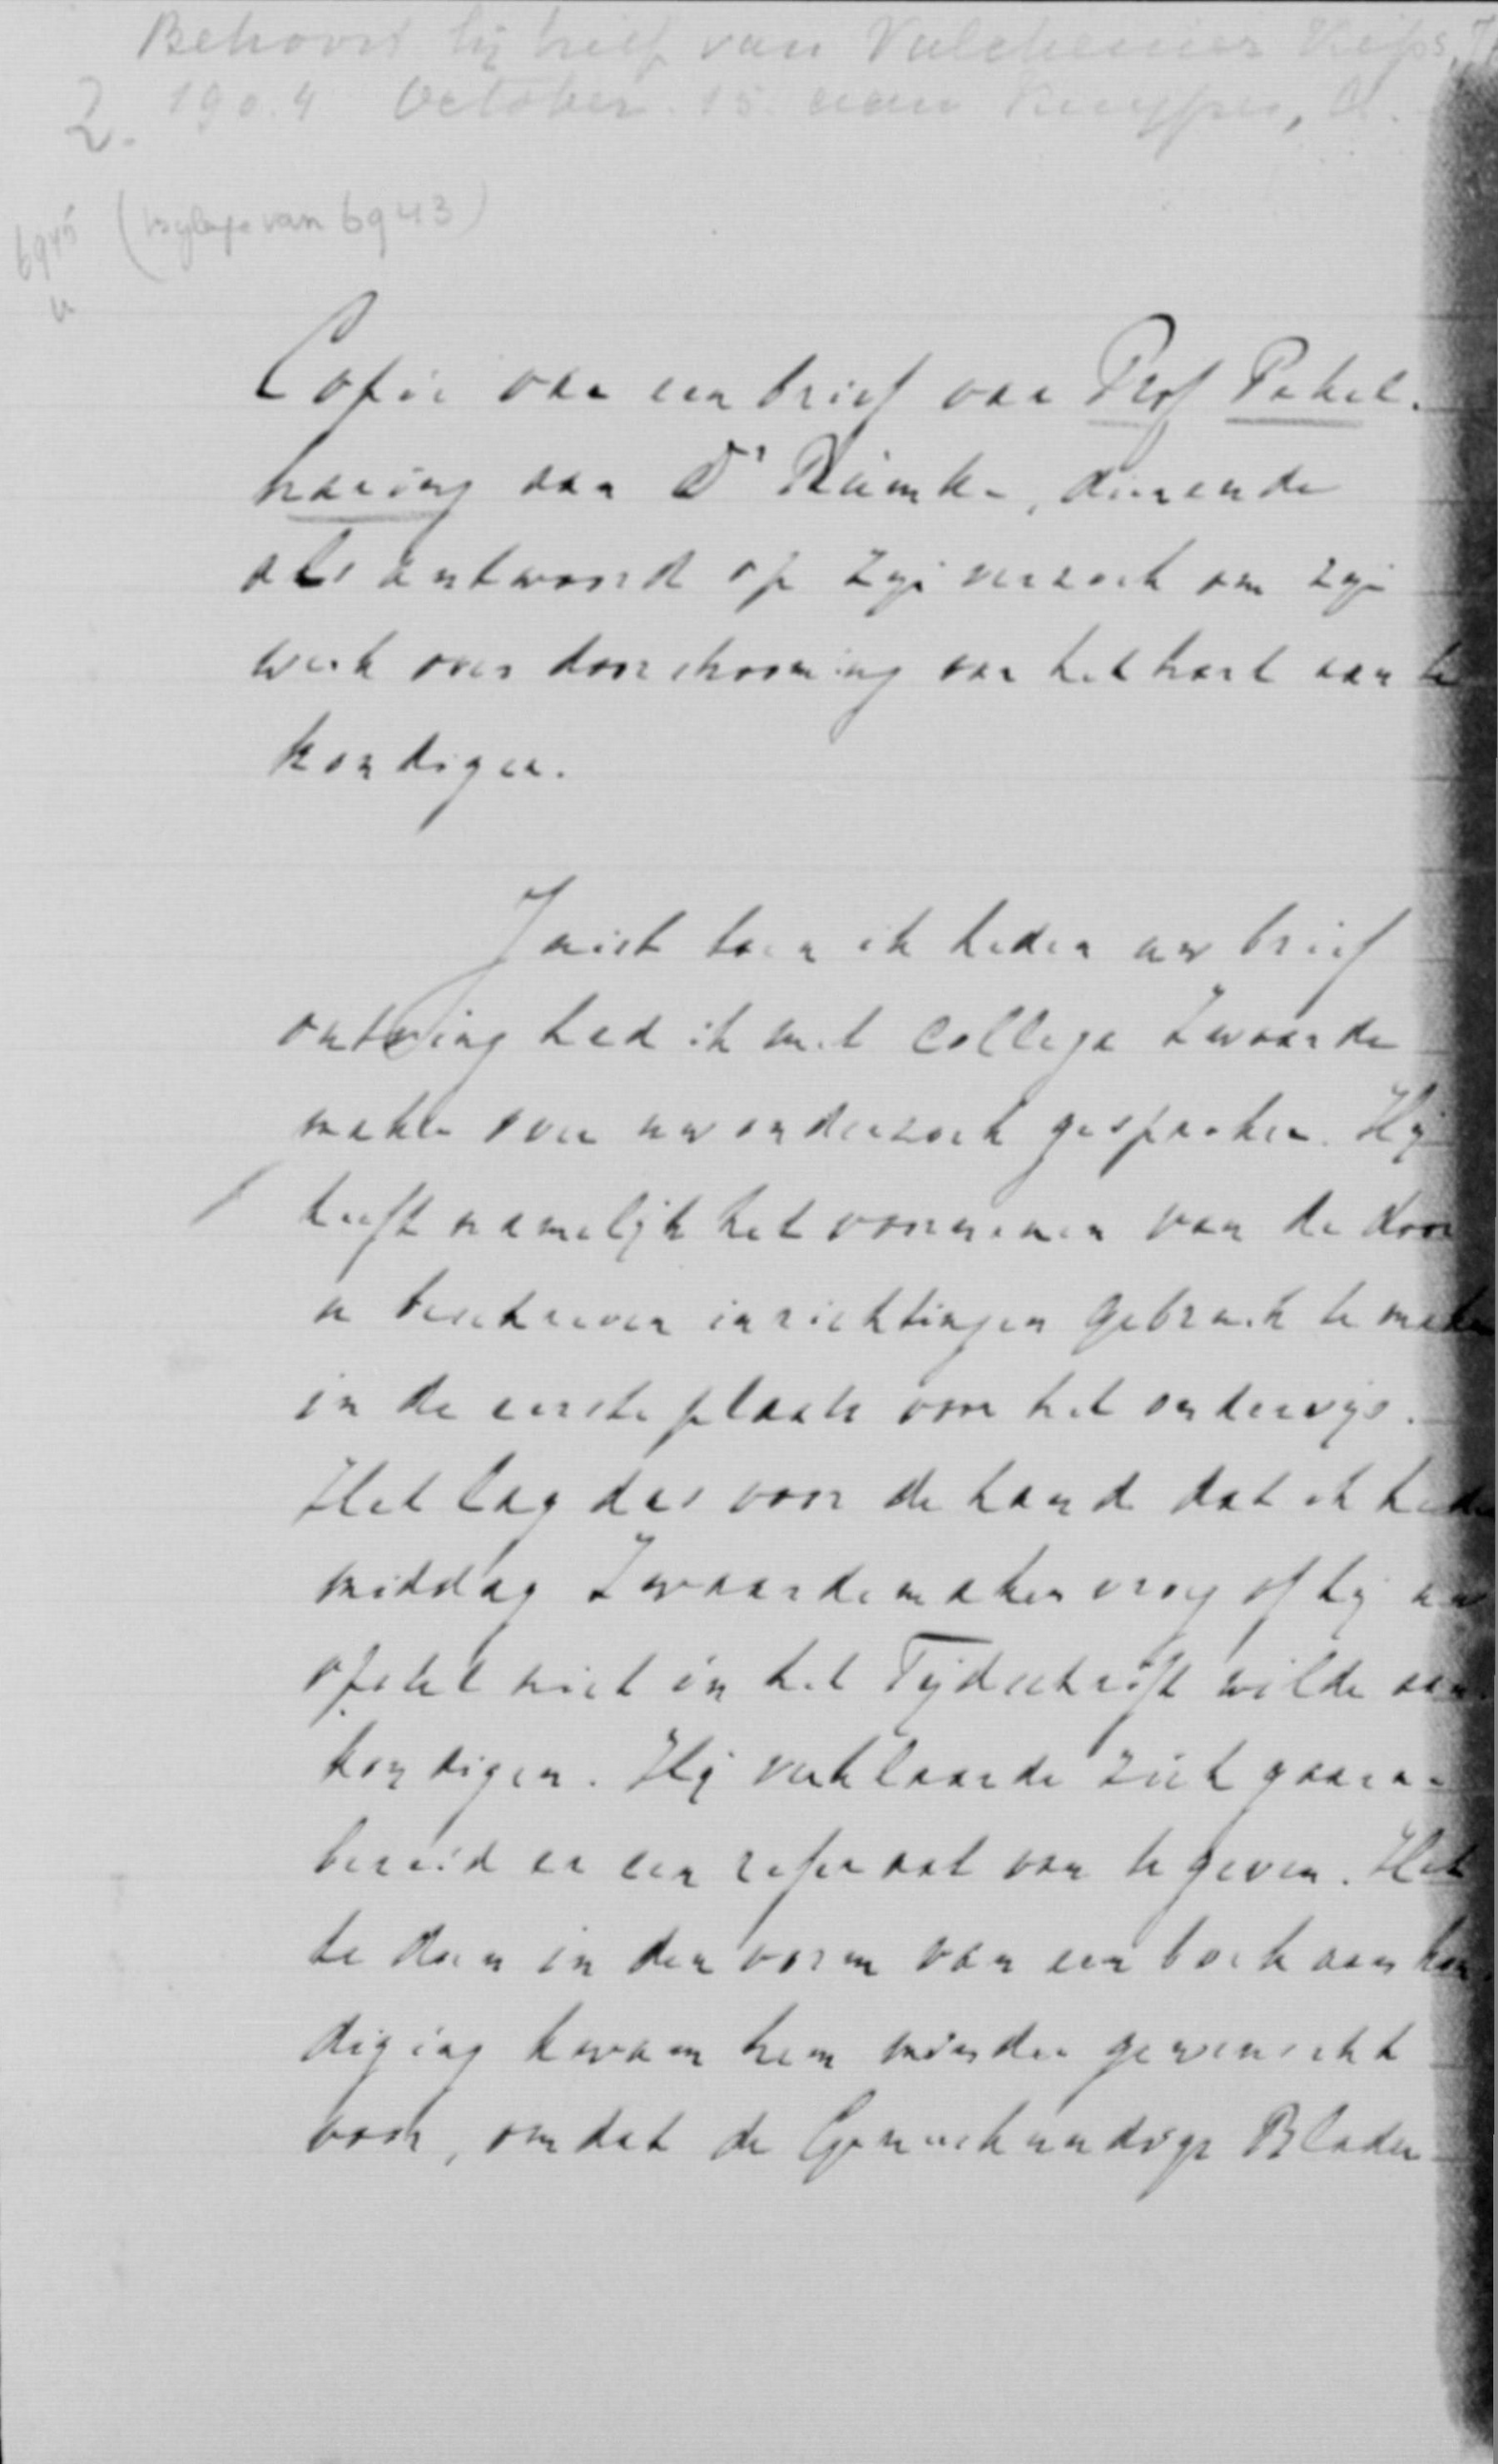 Behoort bij brief van Valckenier Kips, J.H.
2. 1904 October. 15. aan Kuyper, A.
6945 (bijlage van 6943)
Copie van een brief van Prof Pekel-
haring aan Dr Rümke, dienende
als antwoord op zijn verzoek om zijn
werk over doorstrooming van het hart aan te
kondigen.
Juist toen ik heden uw brief
ontving had ik met collega Zwaarde
maker over uw onderzoek gesproken. Hij
heeft namelijk het voornemen van de door
u beschreven inrichtingen gebruik te maken
in de eerste plaats voor het onderwijs.
Het lag dus voor de hand dat ik heden
middag Zwaardemaker vroeg of hij uw
opstel niet in het Tijdschrift wilde aan-
kondigen. Hij verklaarde zich gaarne
bereid er een referaat van te geven. Het
te doen in den vorm van een boekaankon-
diging kwam hem minder gewenscht
voor, omdat de Geneeskundige Bladen